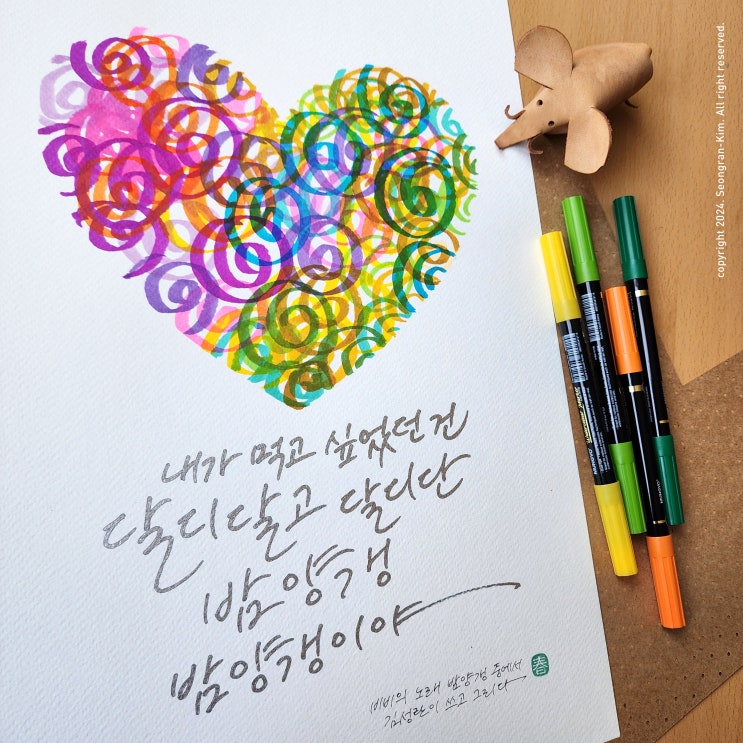 내가 먹고 싶었던 건
달디달고 달디단
밤양갱
밤양갱이야
비비의 노래 밤양갱 중에서
김성란이 쓰고 그리다
春
copyright 2024. Seongran-Kim. All right reserved.